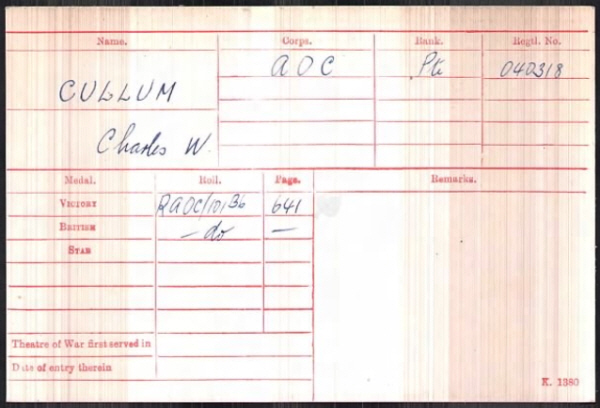 Name. Corps. Rank. Regtl. No.
CULLUM AOC Pte 040318
Charles W.
Medal. Roll. Page. Remarks.
VICTORY RAOC/101B6 641
BRITISH — do —
STAR
Theatre of War first served in
Date of entry therein
K. 1380